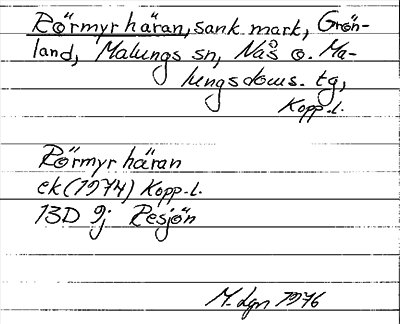 Rörmyrhäran, sank mark, Grön-
land, Malungs sn, Nås o. Ma-
lungs doms. tg,
Kopp.l.
Rörmyrhäran
ek (1974) Kopp.l.
13D 9j Resjön
M. Lgn 1976